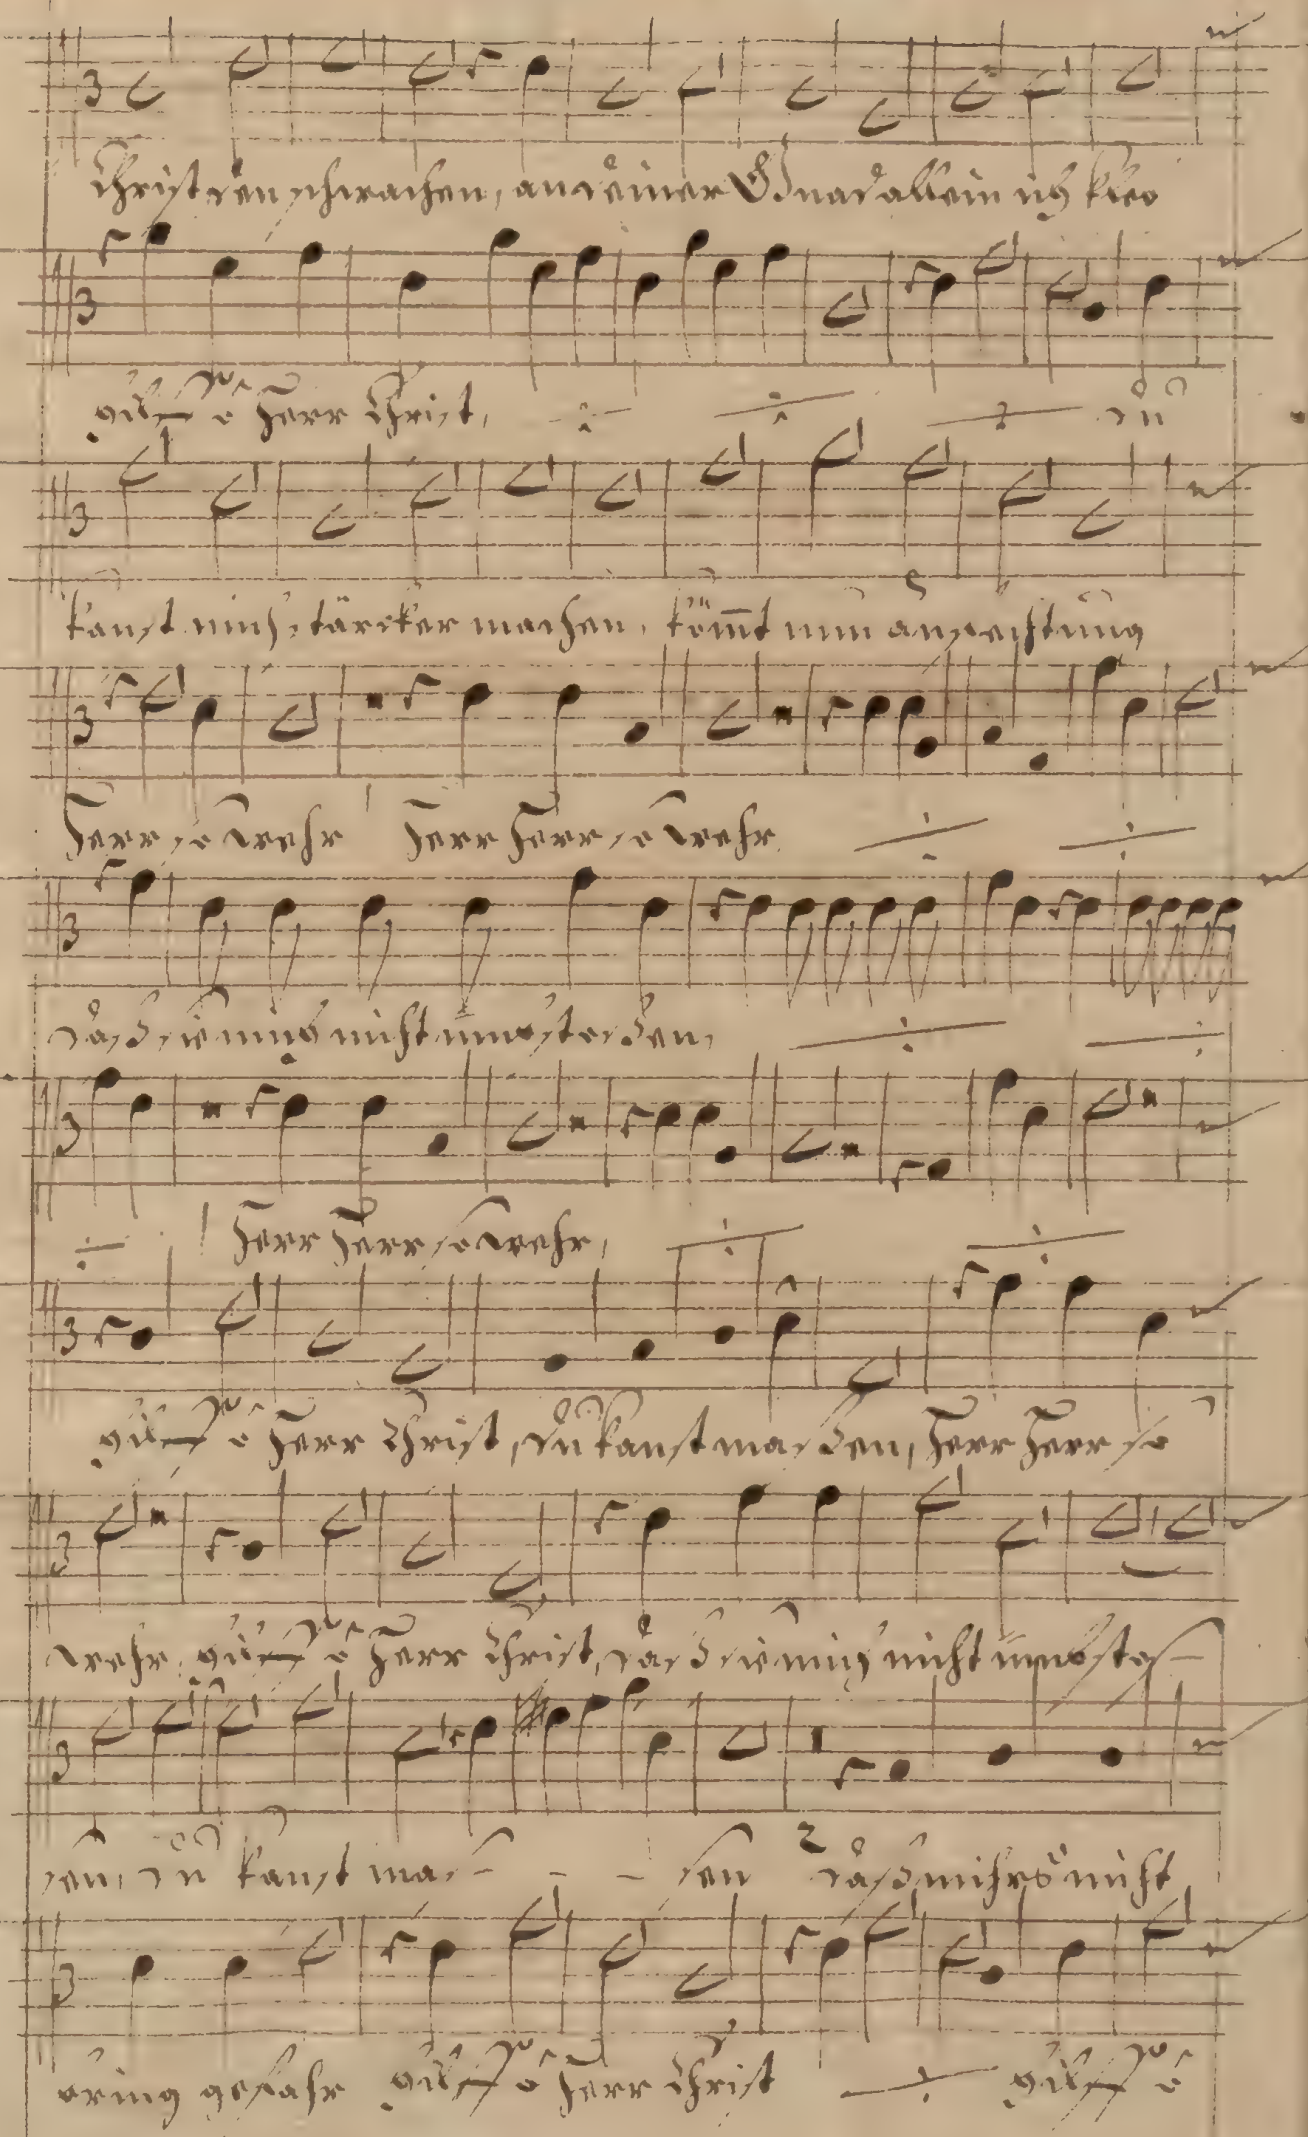 Christ den schwachen, an deiner Gnad allein ich kleb
hilff ô Herr Christ, du
kanst mich stärcker machen, kömt nun anfechtung
Herr so wehr Herr Herr so wehr
daß sie mich nicht umbstossen,
Herr Herr so wehr,
hilff ô Herr Christ, du kanst massen, Herr Herr so
wehr, hilff ô Herr Christ, daß sie mich nicht umbstos-
sen, du kanst mas - - - sen daß mihrs nicht
bring gefahr hilff ô Herr Christ hilff ô